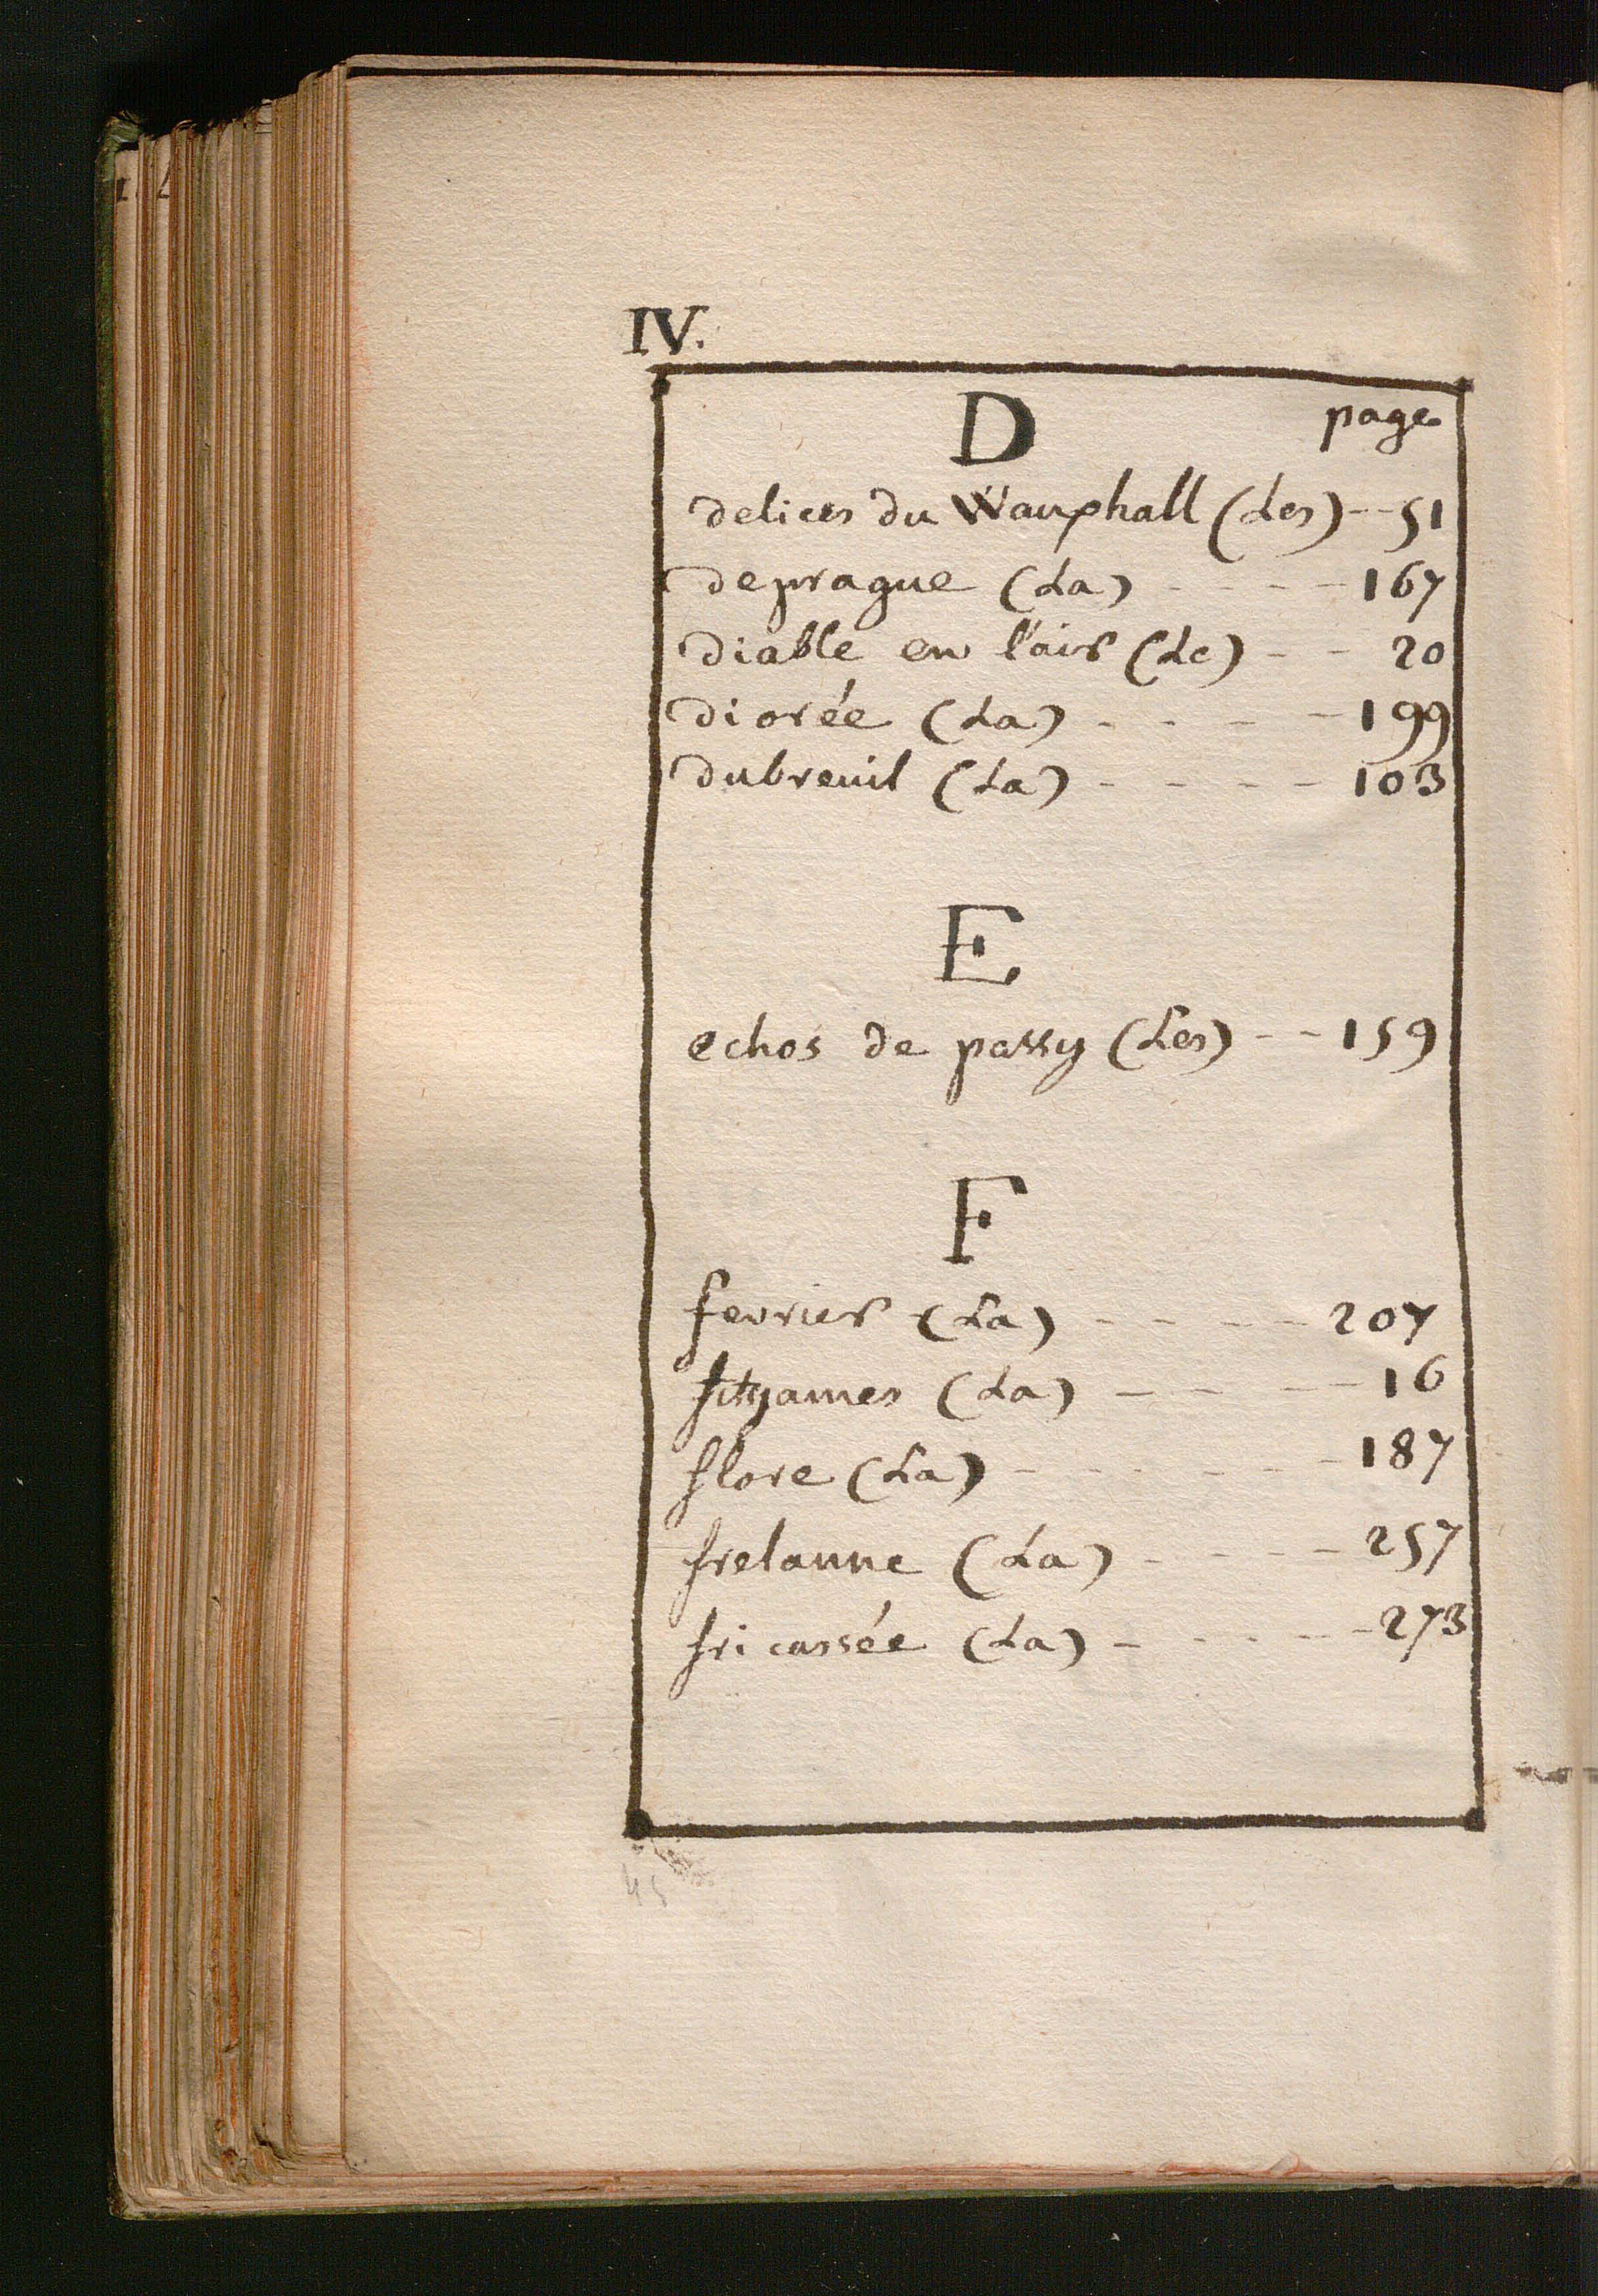 IV.
D page
delices du Wauxhall (Les) -- 51
deprague (La) - - - - 167
diable en l'air (Le) - - 20
diorée (La) - - - - 199
dubreuil (La) - - - - 103
E
echos de passy (Les) - - 159
F
fevrier (La) - - - - 207
fitzjames (La) - - - - 16
flore (La) - - - - - - 187
frelanne (La) - - - - 257
fricassée (La) - - - - - 273
45